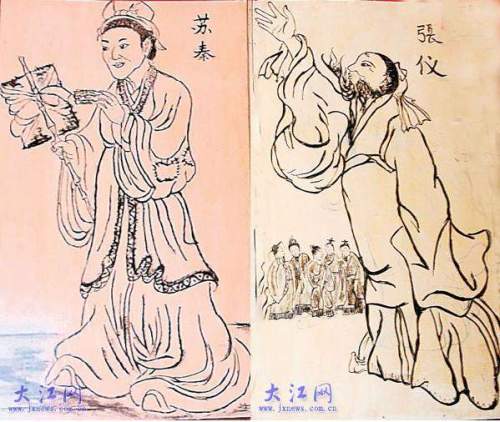 苏秦
大江网
www.jxnews.com.cn
張仪
大江网
www.jxnews.com.cn